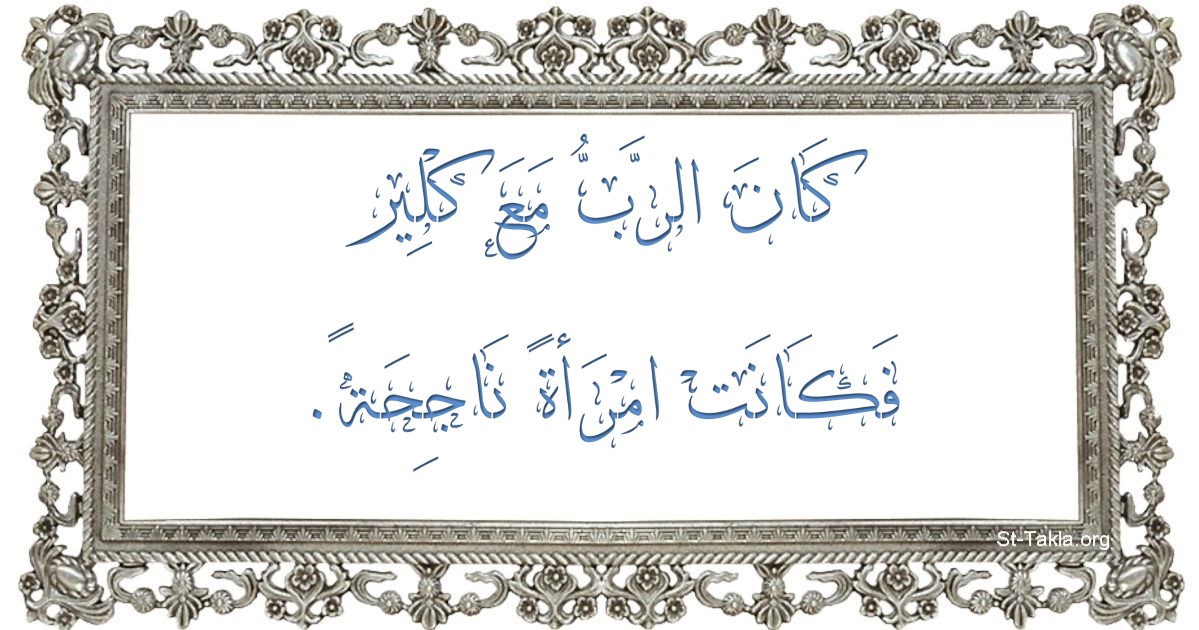 كَانَ الرَّبُّ مَعَ كْلِير
فَكَانَتْ امْرَأةً نَاجِحَةً.
St-Takla.org